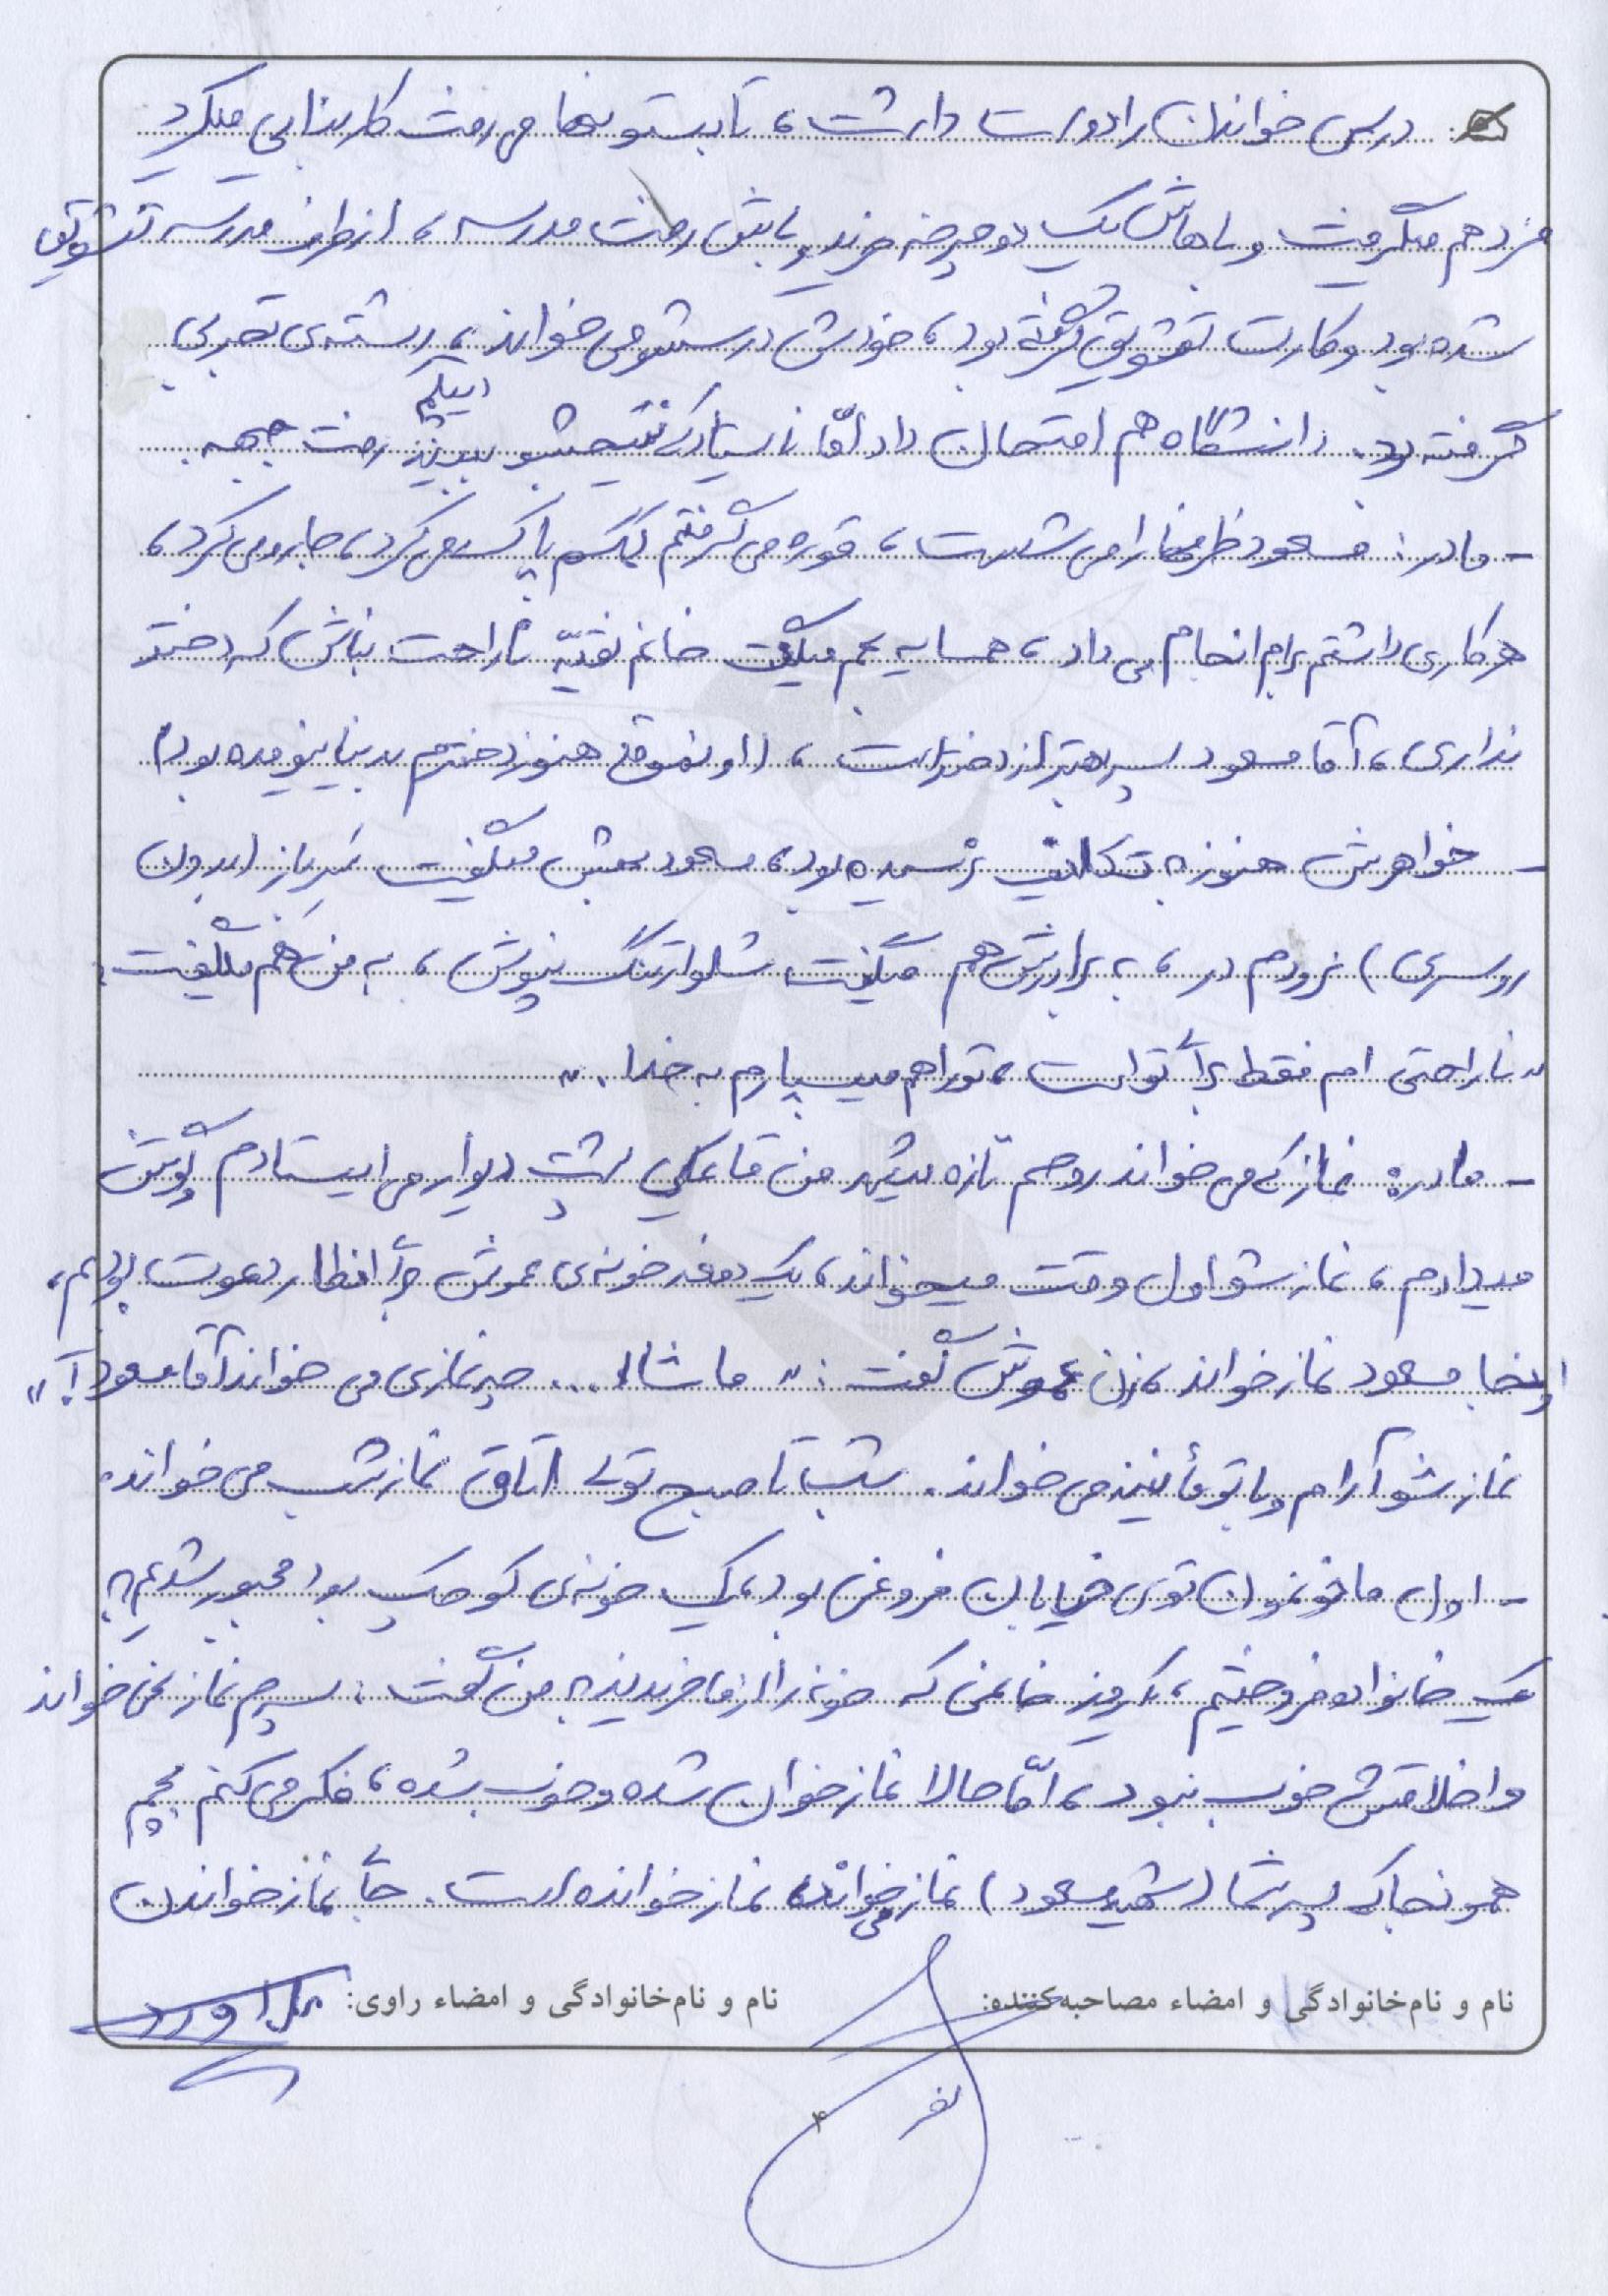 درس خواندن را دوست داشت، تابستونها می رفت کار بنایی میکرد
مزد هم میگرفت و باهاش یک دوچرخه خرید و باهش رفت مدرسه، از طرف مدرسه تشویق
شده بود و کارت تشویق گرفته بود، خودش درسشو می خواند، رشته ی تجربی
دیپلم
گرفته بود. دانشگاه هم امتحان داد امّا نایستاد که نتیجشو ببیند رفت جبهه.
- مادر: مسعود ظرفها را می شست، قوره می گرفتم کمکم پاک می کرد، جارو می کرد،
هر کاری داشتم برام انجام می داد، همسایه بهم میگفت خانم نقدیّه ناراحت نباش که دختر
نداری، آقا مسعود پسر بهتر از دختر است، (اونموقع هنوز دخترم بدنیا نیومده بود)
- خواهرش هنوز به تکلیف نرسیده بود، مسعود بهش میگفت سَرباز (بدون
روسری) نرو دم در، به برادرش هم میگفت شلوار تنگ نپوش، به من هم میگفت:
"ناراحتی ام فقط برای تو است، تو را هم میسپارم به خدا."
- مادر: نماز که می خواند روحم تازه میشد من قایمکی پشت دیوار می ایستادم گوش
میدادم، نمازشو اول وقت میخواند، یک دفعه خونه ی عموش برای افطار دعوت بودیم،
اونجا مسعود نماز خواند، زن عموش گفت: "ماشالا... چه نمازی می خواند آقا مسعود!"
نمازشو آرام و با تومأنینه می خواند. شب تا صبح توی اتاق نماز شب می خواند.
- اول ما خونمون توی خیابان فروغی بود، یک خونه ی کوچک بود مجبور شدیم به
یک خانواده فروختیم، یکروز خانمی که خونه را از ما خریدند به من گفت: پسرم نماز نمی خواند
و اخلاقش خوب نبود، امّا حالا نماز خوان شده و خوب شده، فکر می کنم بچم
همونجا که پسر شما (شهید مسعود) نماز می خوانده نماز خوانده است. جای نماز خواندن
نام و نام‌خانوادگی و امضاء مصاحبه‌کننده: نام و نام‌خانوادگی و امضاء راوی:
۴